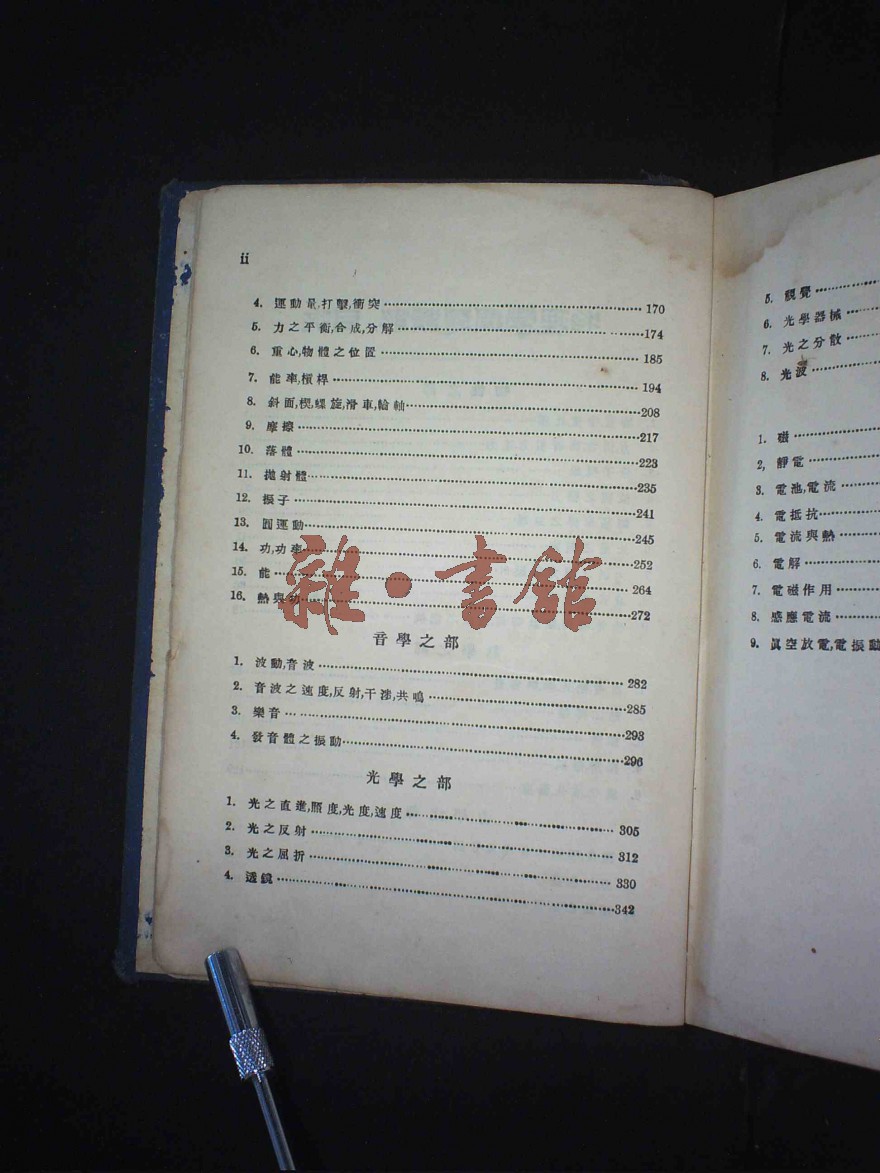 ii
4. 運動量,打擊,衝突 170
5. 力之平衡,合成,分解 174
6. 重心,物體之位置 185
7. 能率,槓桿 194
8. 斜面,楔,螺旋,滑車,輪軸 208
9. 摩擦 217
10. 落體 223
11. 拋射體 235
12. 振子 241
13. 圓運動 245
14. 功,功率 252
15. 能 264
16. 熱與功 272
音學之部
1. 波動,音波 282
2. 音波之速度,反射,干涉,共鳴 285
3. 樂音 293
4. 發音體之振動 296
光學之部
1. 光之直進,照度,光度,速度 305
2. 光之反射 312
3. 光之屈折 330
4. 透鏡 342
雜·書館
5. 視覺
6. 光學器械
7. 光之分散
8. 光波
1. 磁
2, 靜電
3. 電池,電流
4. 電抵抗
5. 電流與熱
6. 電解
7. 電磁作用
8. 感應電流
9. 眞空放電,電振動